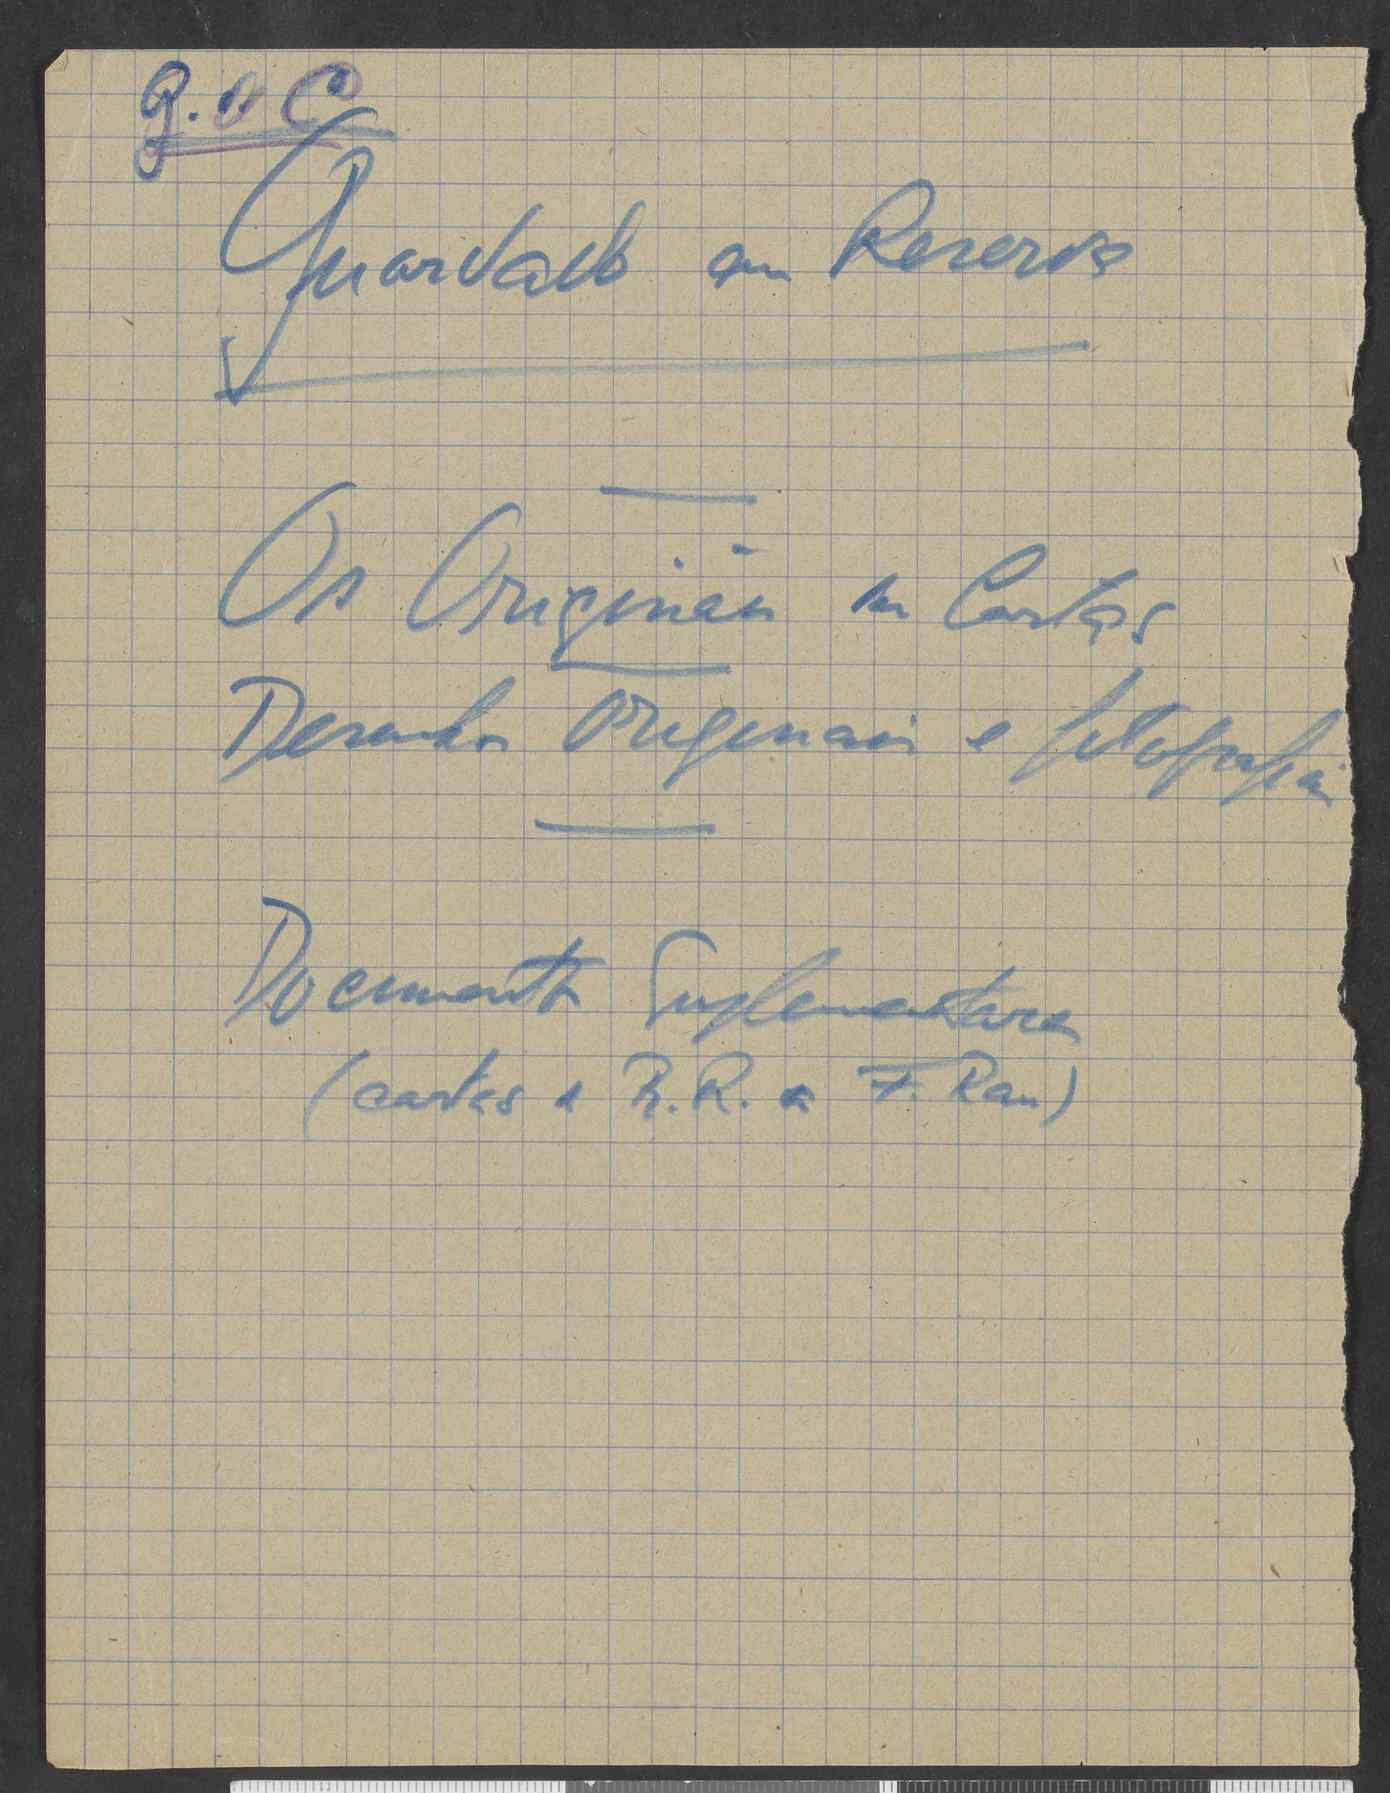 Guardado em Reserva
Os Originais das Cartas
Desenhos Originais e fotografias
Documentos Suplementares
(cartas de R.R. a F. Rau)